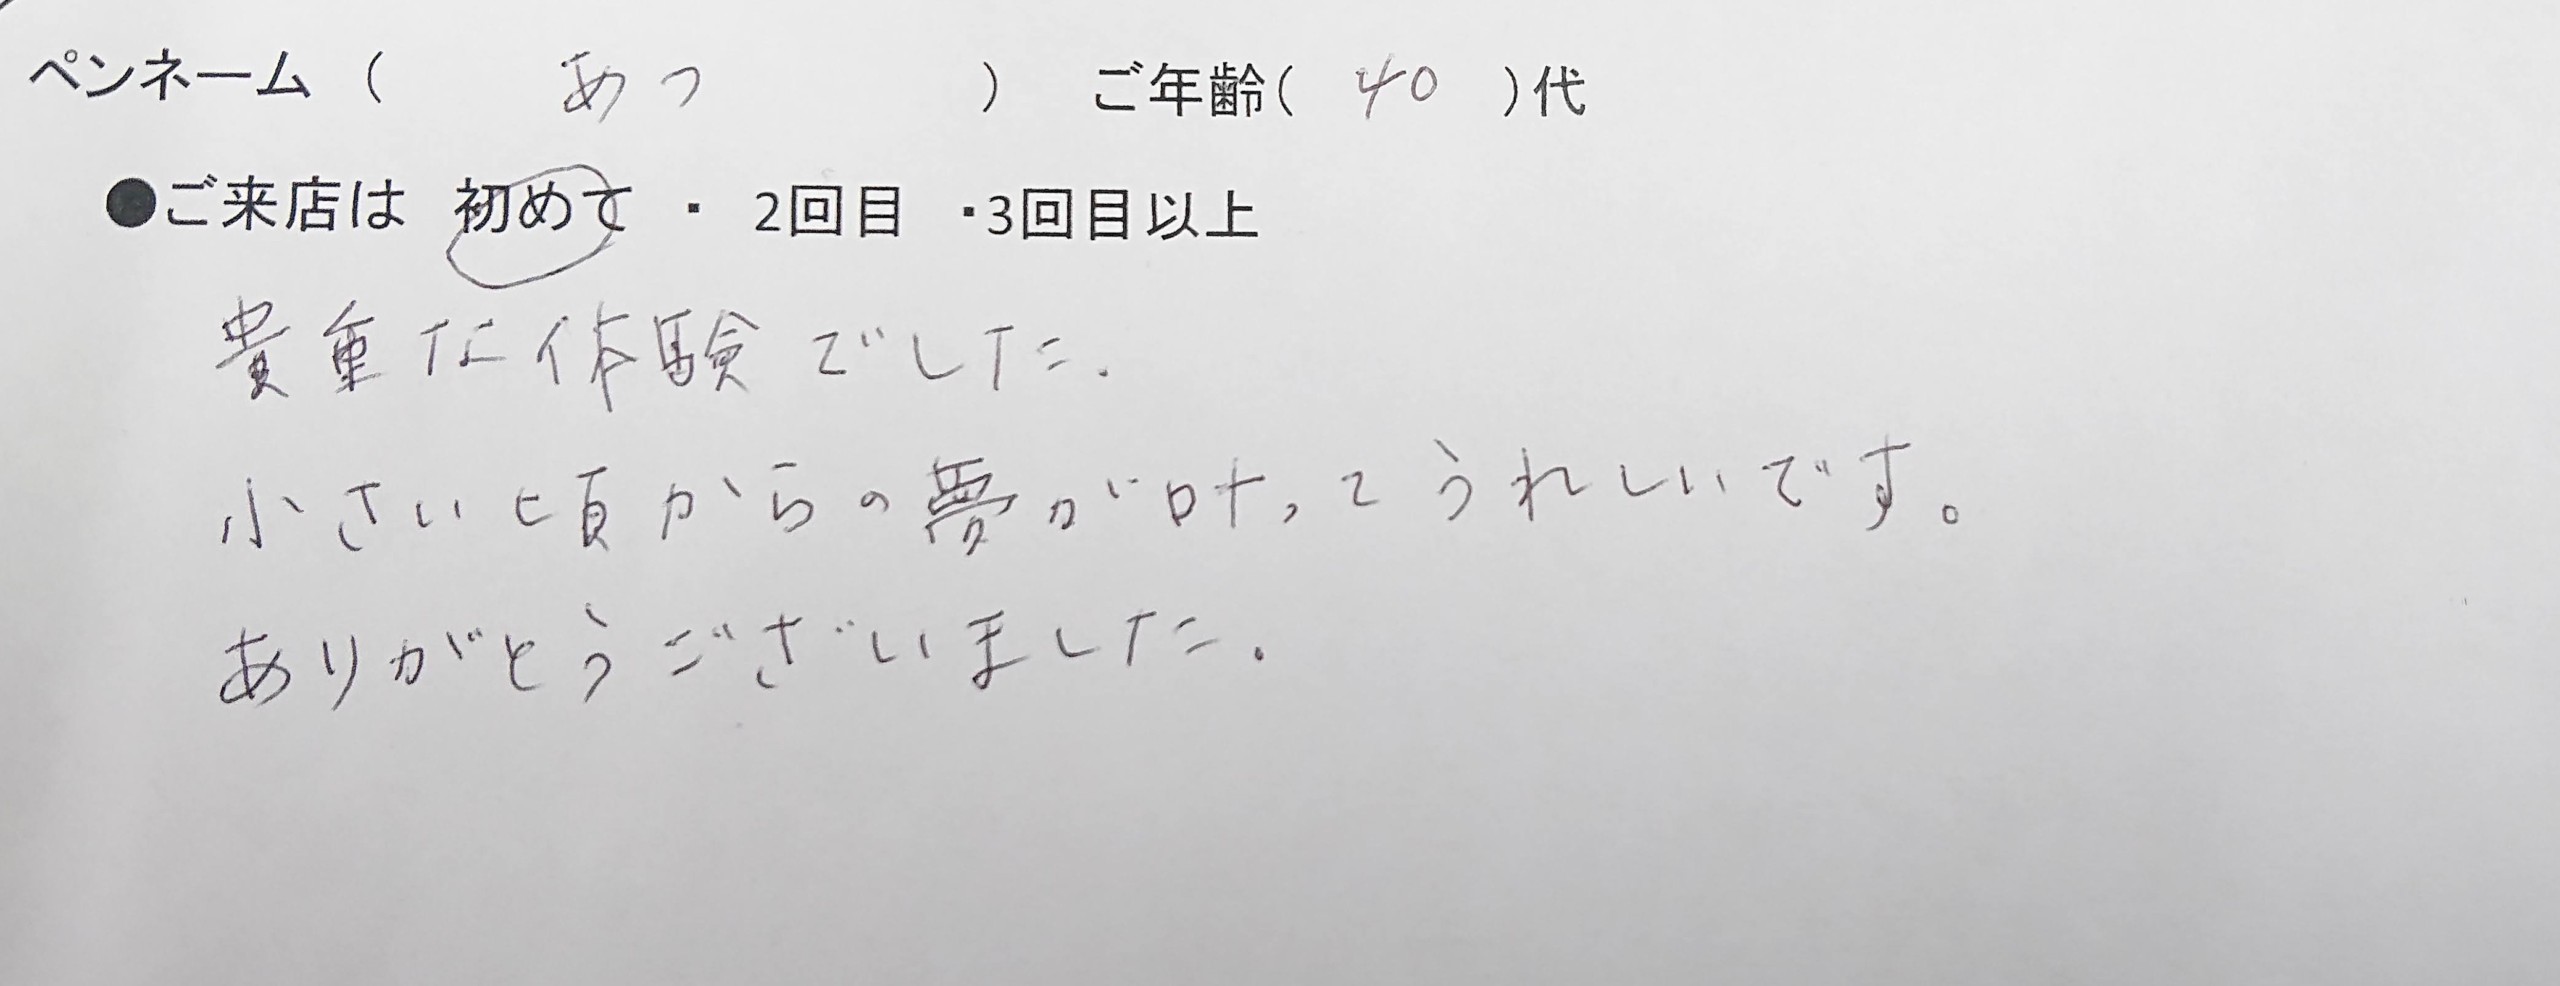 ペンネーム ( あつ ) ご年齢( 40 )代
●ご来店は 初めて ・ 2回目 ・3回目以上
貴重な体験でした.
小さい頃からの夢が叶ってうれしいです。
ありがとうございました.